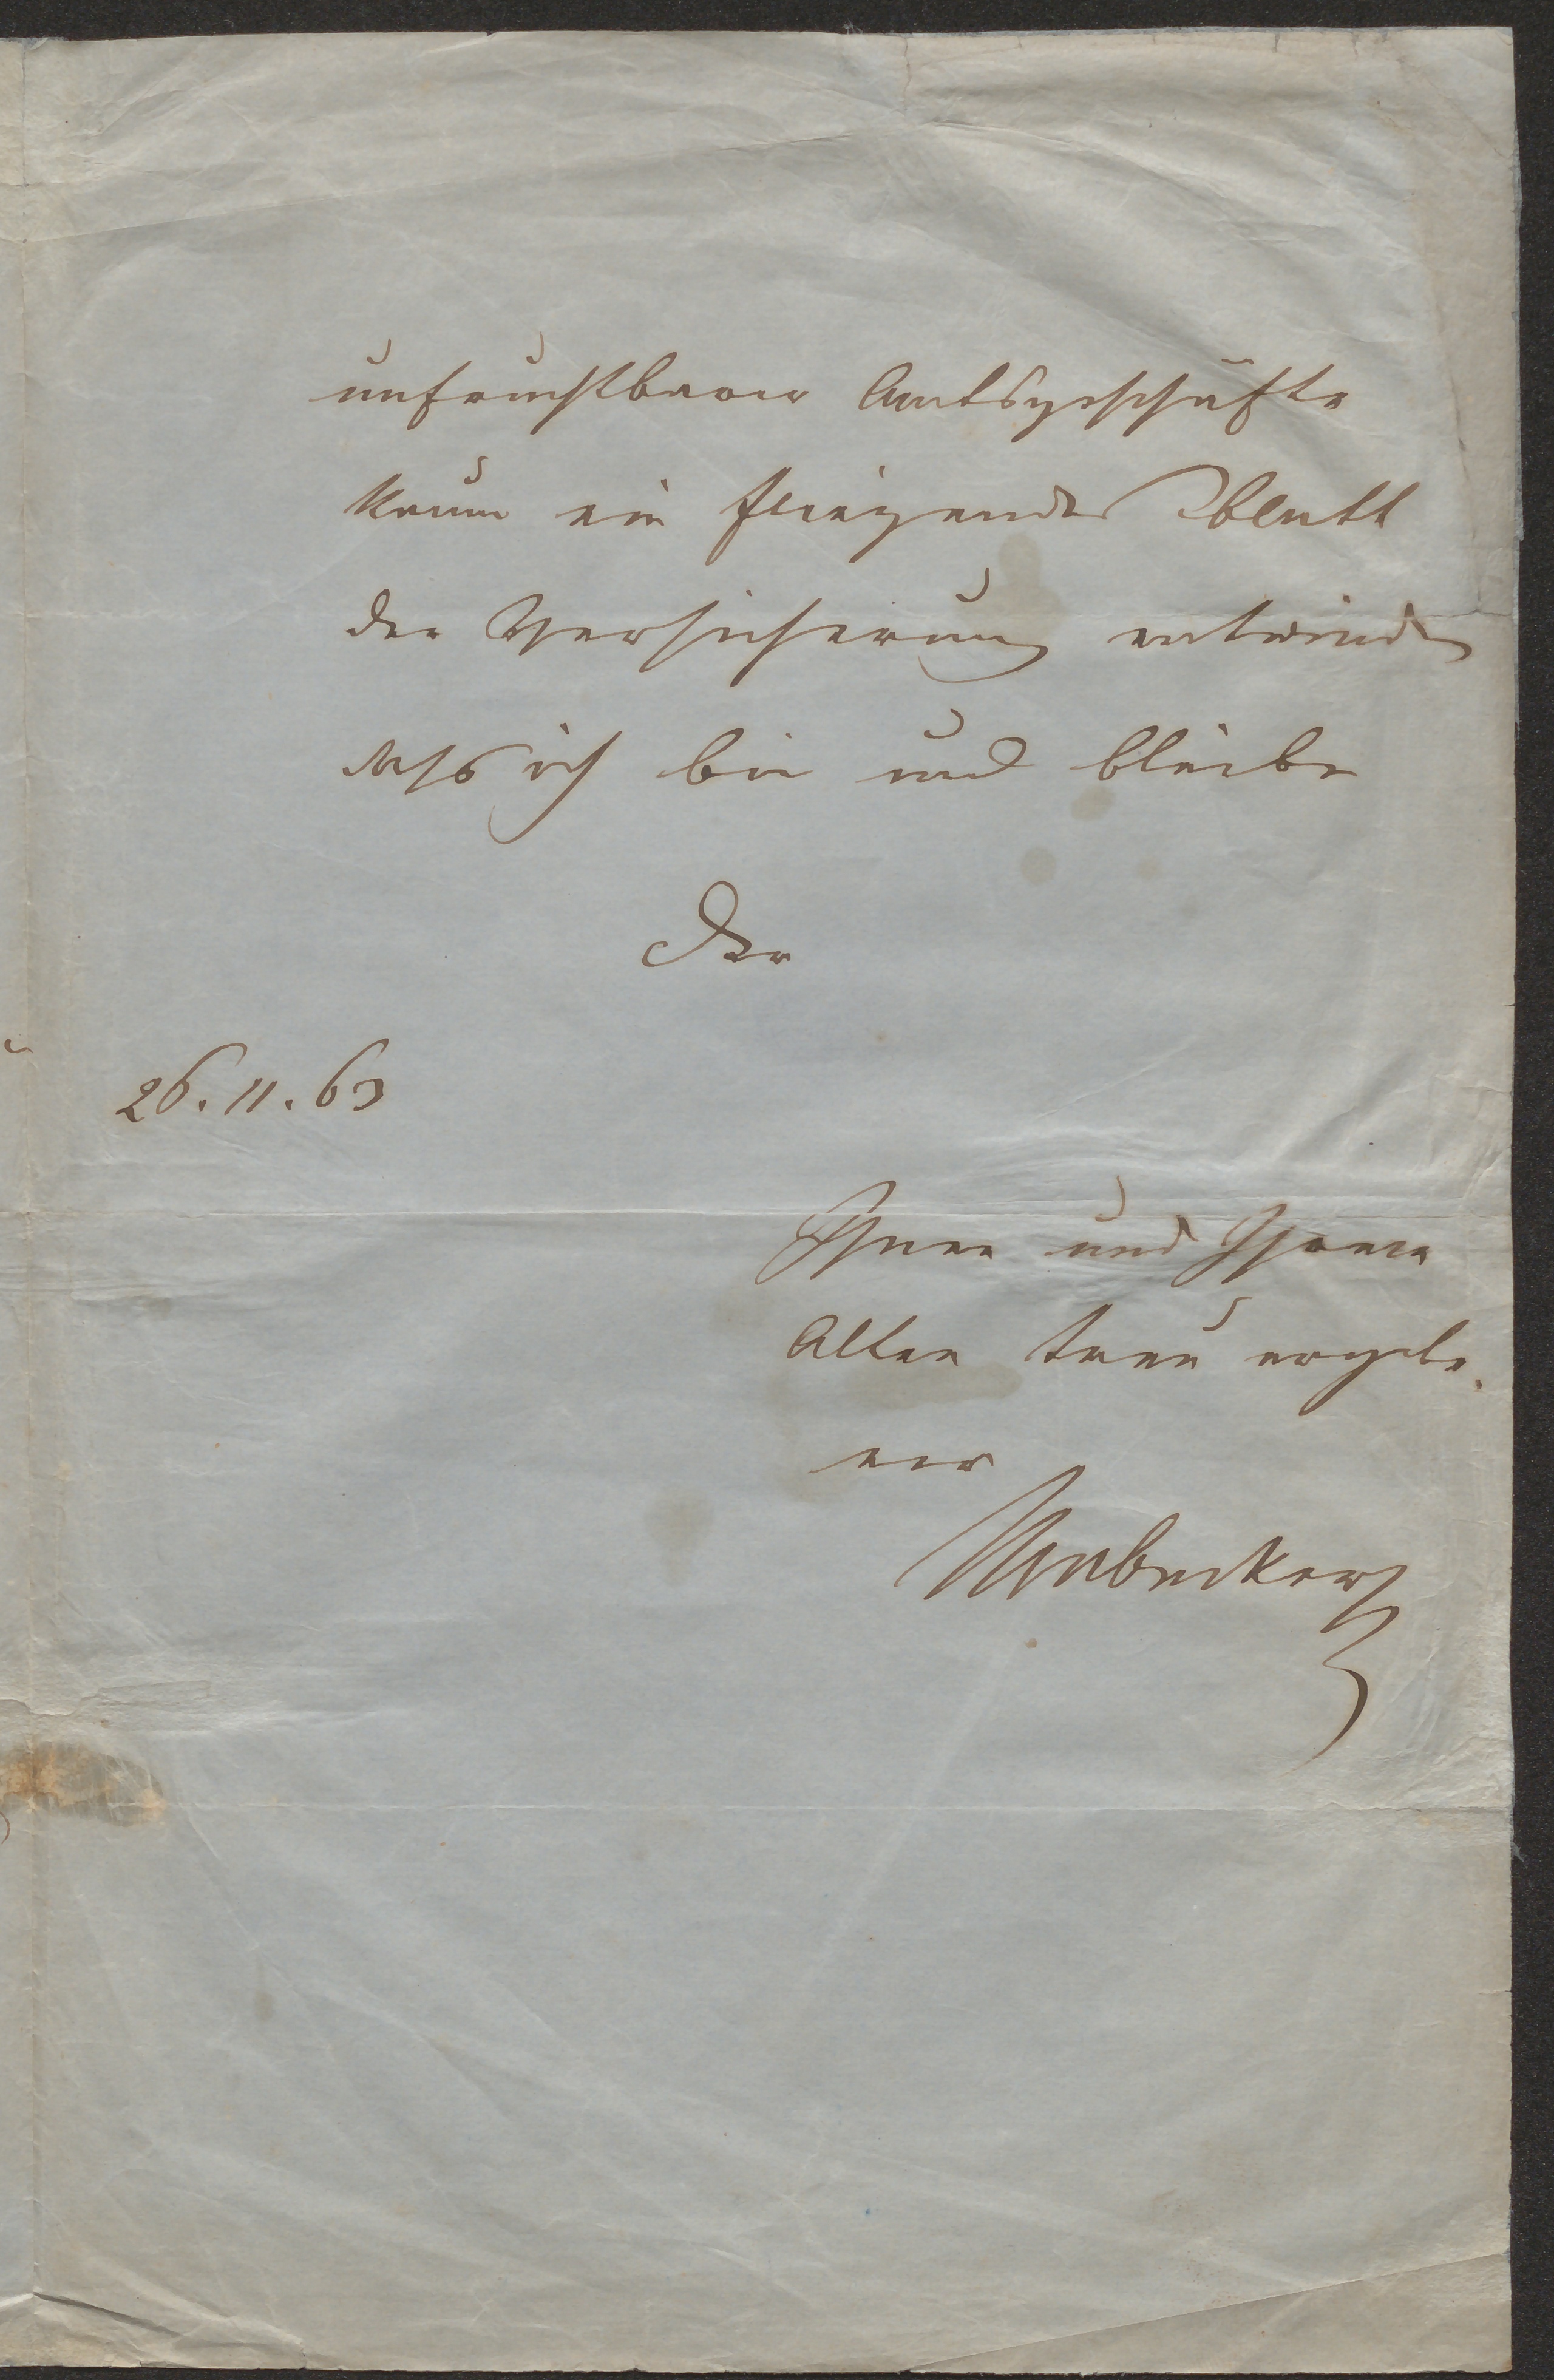 unfruchtbarer Amtsgeschäfte
kaum ein fliegendes Blatt
der Versicherung entwinde
daß ich bin und bleibe
Der
26. 11. 63
Ihnen und Ihren
Allen treu ergebe,
ner